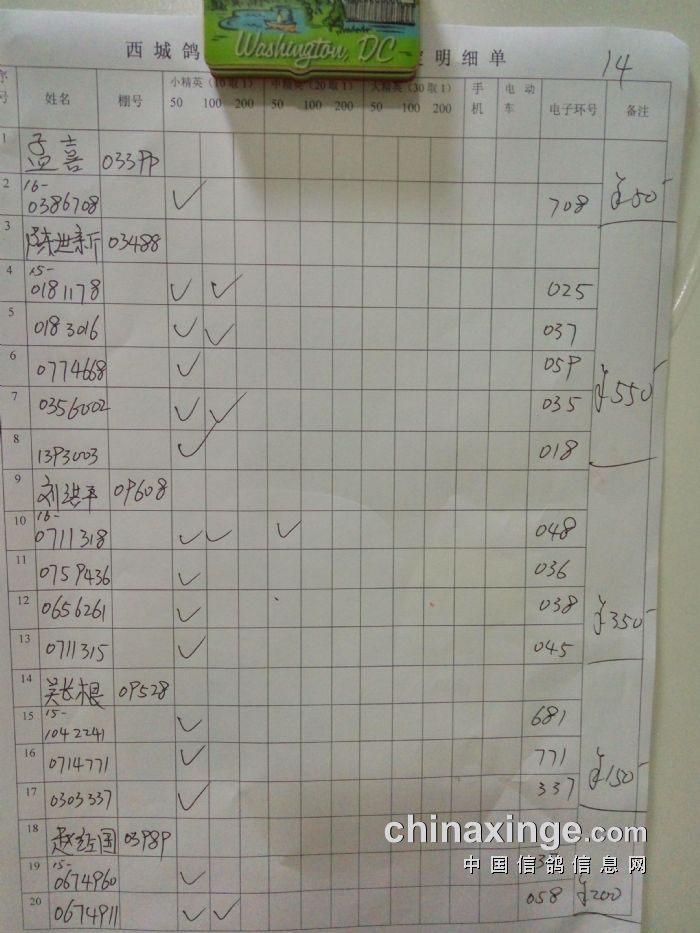 Washington, DC
西城鸽 定明细单 14
序号 姓名 棚号 小精英（10取1） 50 100 200 中精英（20取1） 50 100 200 大精英（30取1） 50 100 200 手机 电动车 电子环号 备注
1 孟喜 033PP
2 16-0386708 ✓ 708 ¥50-
3 陈世新 03488
4 15-0181178 ✓ ✓ 025
5 0183016 ✓ ✓ 037
6 0774668 ✓ 05P
7 0356002 ✓ ✓ 035 ¥550-
8 13P3003 ✓ 018
9 刘洪平 0P608
10 16-0711318 ✓ ✓ ✓ 048
11 075P436 ✓ 036
12 0656261 ✓ 038 ¥350-
13 0711315 ✓ 045
14 吴长根 0P528
15 15-1042241 ✓ 681
16 0714771 ✓ 771 ¥150-
17 0303337 ✓ 337
18 赵红国 03P8P
19 15-0674960 ✓
20 0674911 ✓ ✓ 058 ¥200
chinaxinge.com
中国信鸽信息网